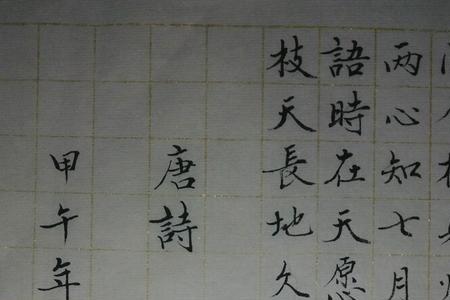 两心知七月
語時在天愿
枝天長地久
唐詩
甲午年